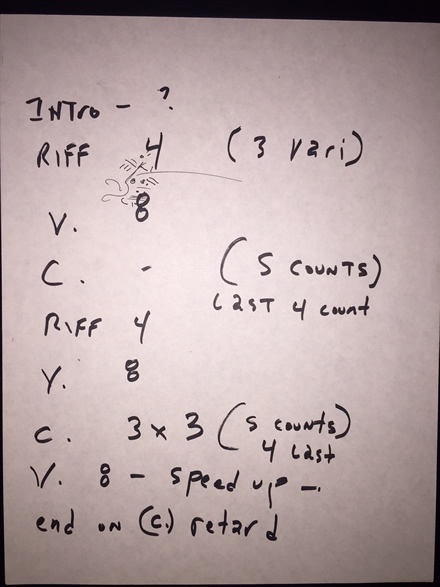 INTro - ?
RIFF 4 (3 Vari)
V. 8
C. - (5 COUNTS)
LAST 4 count
RIFF 4
V. 8
C. 3 x 3 (5 counts)
4 Last
V. 8 - Speed up -
end on (C.) retard